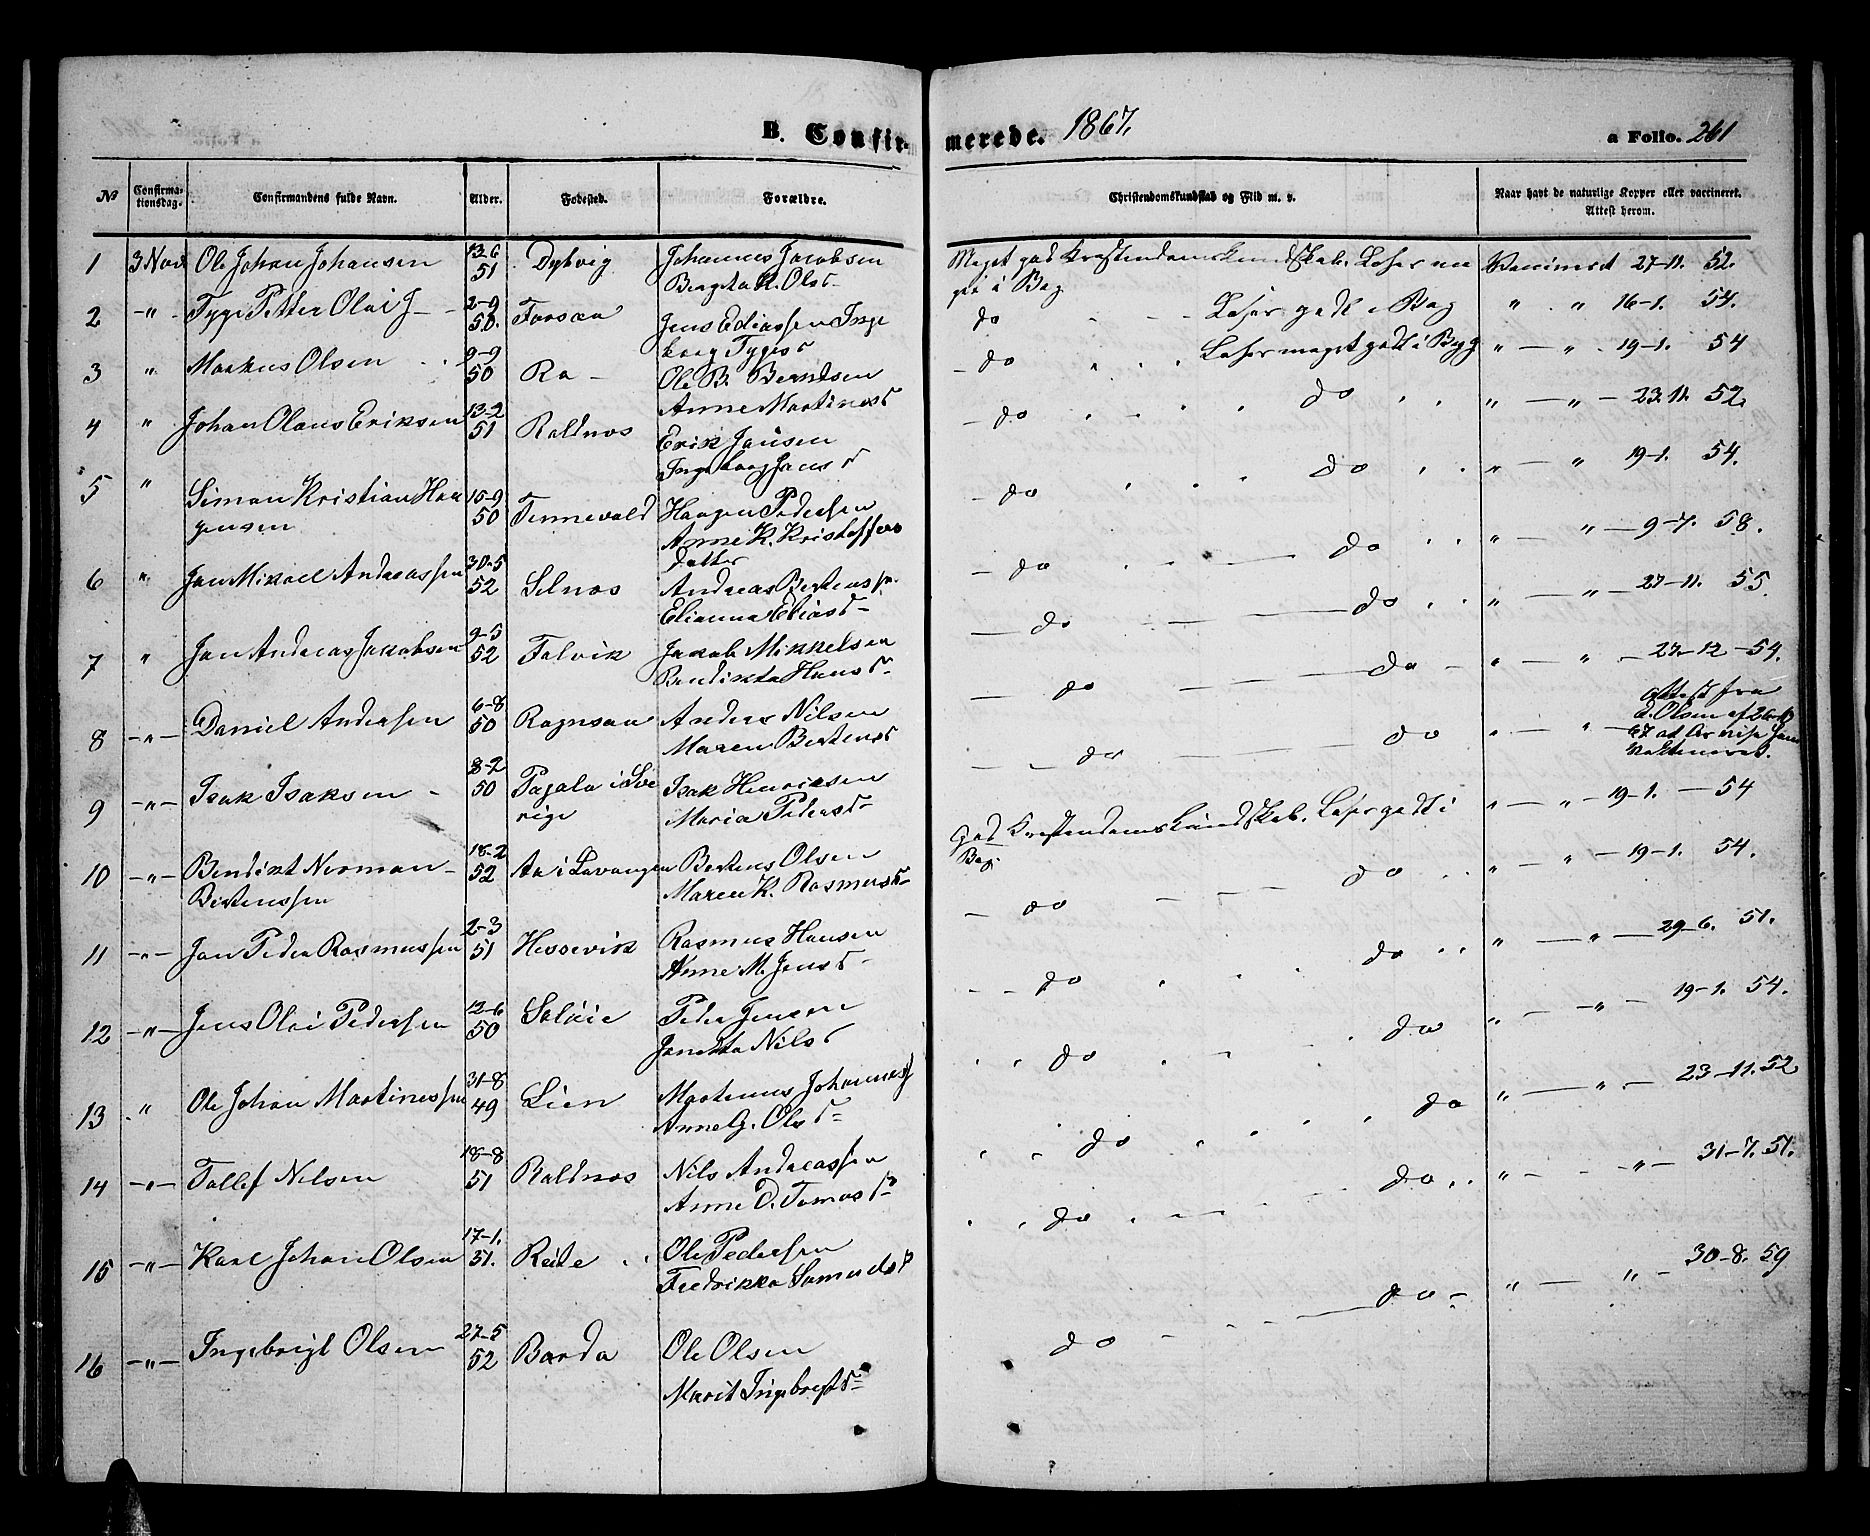 B. Confir-
merede. 1867.
a Folio. 261
No
Confirma-
tionsdag.
Confirmandens fulde Navn.
Alder.
Fødested.
Forældre.
Christendomskundskab og Flid m. v.
Naar havt de naturlige Kopper eller vaccineret.
Attest herom.
1 3 Nov Ole Johan Johansen 13-6 51 Dykvig Johannes Jacobsen
Bergita K. Olsd-
Meget god Krestendomskundskab. Læser me
get i Bog
Vaccineret 27-11. 52.
2 -"- Tyge Petter Olai J- 2-9 50. Forsaa Jens Ediassen Inge
borg Tygesd
do - - - Læser godt i Bog " " 16-1. 54.
3 " Markus Olsen 9-9 50 Ra- Ole B. Berntsen
Anne Martinesd
- do Læser meget godt i Bog " - " 19-1. 54
4 " Johan Olaus Eriksen 13-2 51 Roldnes Erik Jansen
Ingeborg Jansd
- do do " - " - 23.11. 52.
5 " Simon Kristian Haa
gensen 15-9 50 Tennevold Haagen Pedersen
Anne K. Kristoffers
datter
- do do " - " 19-1. 54.
6 " Jan Mikael Andreassen 30-5 52 Selnes Andreas Bertenssn.
Elianna Eliasd-
- do do " - " - 9-7. 58.
7 " Jan Andreas Jakobsen 9-5 52 Falvik Jakob Mikkelsen
Bendikta Hansd-
- do do " - " - 27-11. 55.
8 -"- Daniel Andersen 6-8 50 Rognsaa Anders Nilsen
Maren Bertensd
- do do - " - " - 27-12-54.
9 -"- Isak Isaksen - 8-2 50 Pajala i Sve
rige Isak Henriksen
Maria Pedersd-
- do do " " Attest fra
d. Olsen af
67 at
10 -"- Bendikt Norman-
Bertenssen 18-2 52 Aa i Lavangen Bertens Olsen
Maren K. Rasmusd-
god Krestendomskundskab. Læser godt i
Bog.
" - " - 19-1. - 54
11 -"- Jan Peder Rasmussen 2-3 51 Hessevik Rasmus Hansen
Anne M. Jensd-
- do do " - " - 19-1. 54.
12 -"- Jens Olai Pedersen 12-6 50 Saløie Peder Jensen
Janetta Nilsd
- - do do " - " - 29-6. 51.
13 " Ole Johan Martinessen 31-8 49 Lien Martenus Johannes
Anne G. Olsd-
do do " - " - 19-1. 54.
14 -"- Tollef Nilsen 18-8 51 Roldnes Nils Andreassen
Anne D. Tomasd-
do do " - " - 23-11. 52
15 -"- Karl Johan Olsen 17-1. 51. Reite Ole Pedersen
Fredrikka Samuelsd
do do " - -"- 31-7. 51.
16 -"- Ingebrigt Olsen 27-5 52 Bardo Ole Olsen
Marit Ingebregtsd-
do do- " - " - 30-8. 59